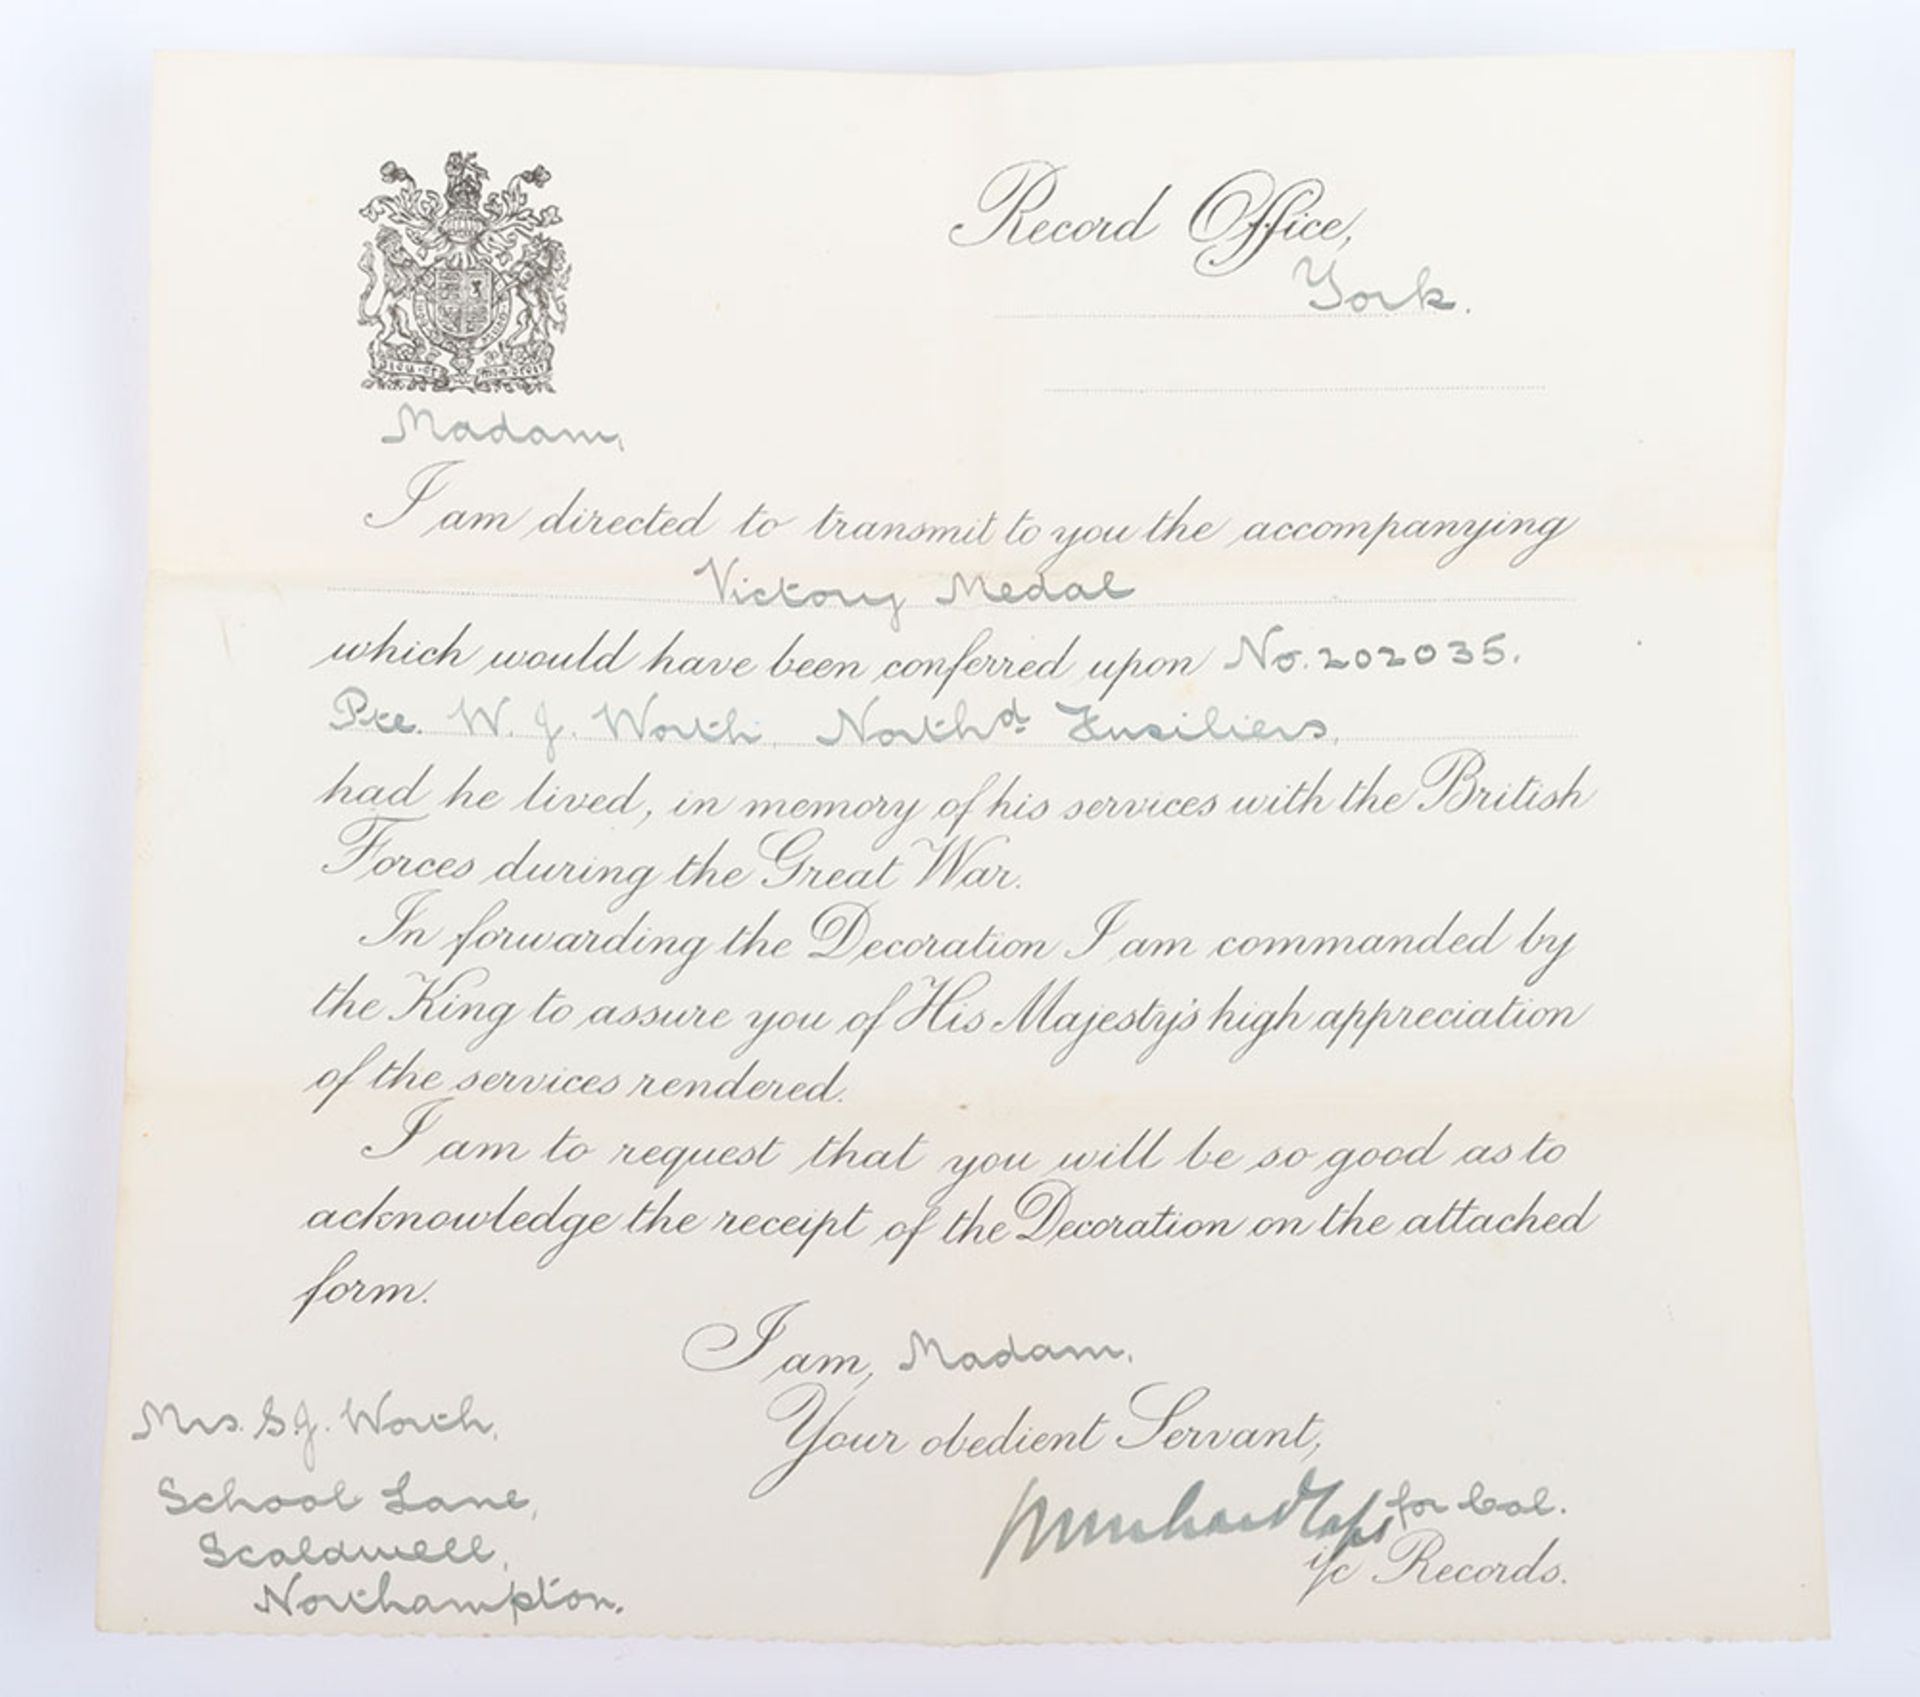 Record Office,
York.
DIEU·ET MON·DROIT
Madam,
I am directed to transmit to you the accompanying
Victory Medal
which would have been conferred upon No. 202035.
Pte. W. J. Worth, North^d. Fusiliers,
had he lived, in memory of his services with the British
Forces during the Great War.
In forwarding the Decoration I am commanded by
the King to assure you of His Majesty's high appreciation
of the services rendered.
I am to request that you will be so good as to
acknowledge the receipt of the Decoration on the attached
form.
I am, Madam,
Your obedient Servant,
for Col.
i/c Records.
Mrs. S. J. Worth,
School Lane,
Scaldwell,
Northampton.